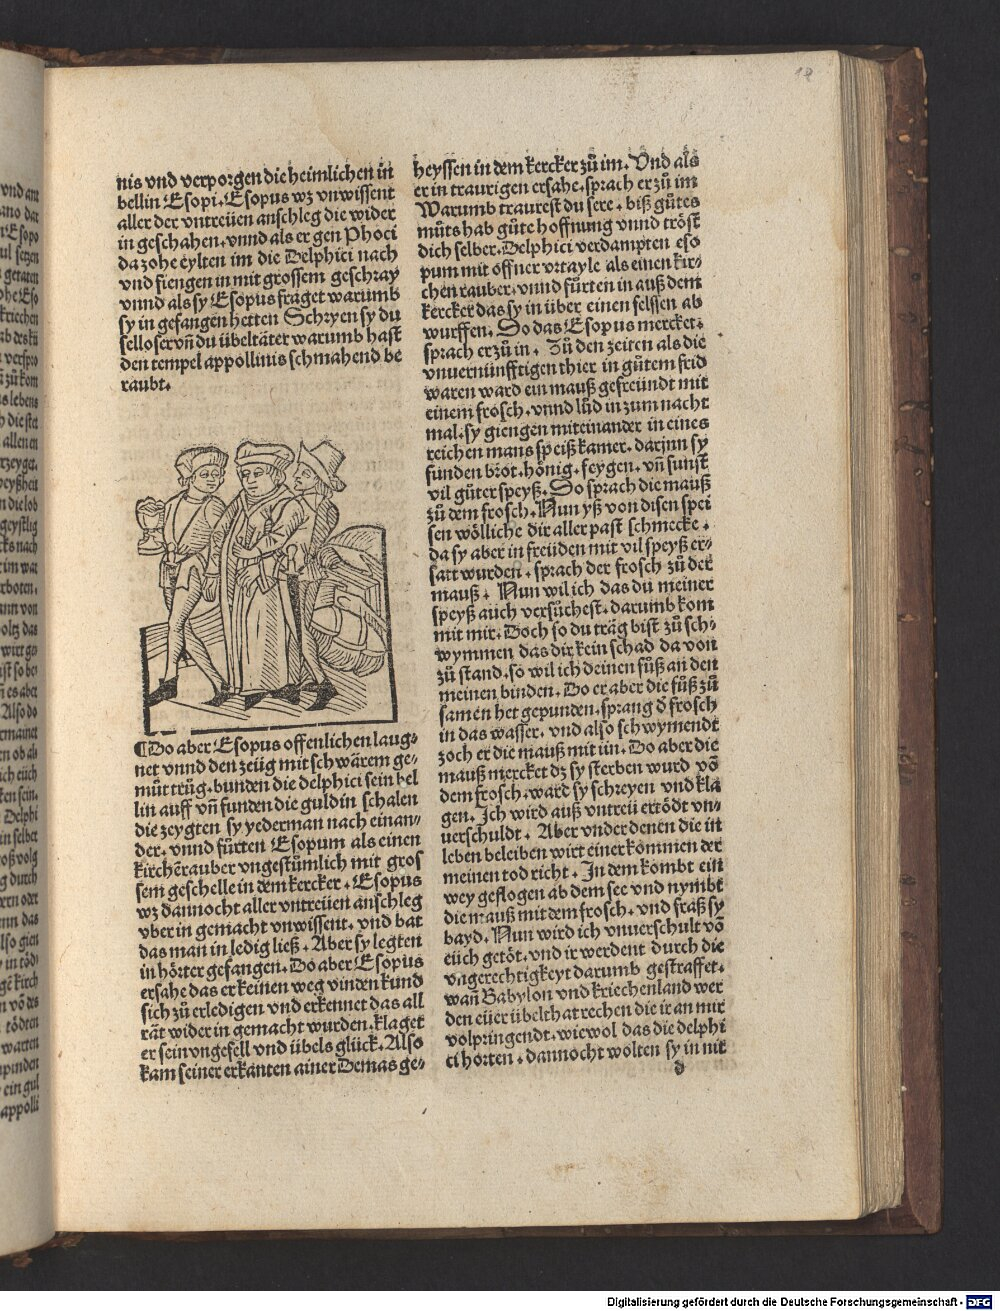 18
nis vnd verporgen die heimlichen in
bellin Esopi. Esopus wz vnwissent
aller der vntreüen anschleg die wider
in geschahen. vnnd als er gen Phoci
da zohe eylten im die Delphici nach
vnd fiengen in mit grossem geschray
vnnd als sy Esopus fraget warumb
sy in gefangen hetten Schryen sy du
selloser vñ du übeltäter warumb hast
den tempel appollinis schmahend be
raubt.
¶ Do aber Esopus offenlichen laug⸗
net vnnd den zeüg mit schwärem ge⸗
müt trůg. bunden die delphici sein bel
lin auff vñ funden die guldin schalen
die zeygten sy yederman nach einan⸗
der. vnnd fürten Esopum als einen
kirchẽrauber vngestümlich mit gros
sem geschelle in dem kercker. Esopus
wz dannocht aller vntreüen anschleg
vber in gemacht vnwissent. vnd bat
das man in ledig ließ. Aber sy legten
in hörter gefangen. Do aber Esopus
ersahe das er keinen weg vinden kund
sich zů erledigen vnd erkennet das all
rät wider in gemacht wurden. klaget
er sein vngefell vnd übels glück. Also
kam seiner erkanten ainer Demas ge⸗
heyssen in dem kercker zů im. Vnd als
er in traurigen ersahe. sprach er zů im
Warumb traurest du sere. biß gůtes
můts hab gůte hoffnung vnnd tröst
dich selber. Delphici verdampten eso
pum mit offner vrtayle als einen kir⸗
chen rauber. vnnd fürten in auß dem
kercker das sy in über einen felssen ab
wurffen. So das Esopus mercket.
sprach er zů in. Zů den zeiten als die
vnuernünfftigen thier in gůtem frid
waren ward ein mauß gefreündt mit
einem frosch. vnnd lůd in zum nacht
mal. sy giengen miteinander in eines
reichen mans speißkamer. darjnn sy
funden brot. hönig. feygen. vñ sunst
vil gůter speyß. So sprach die mauß
zů dem frosch. Nun yß von disen spei
sen wölliche dir aller past schmecke.
da sy aber in freüden mit vil speyß er⸗
satt wurden. sprach der frosch zů der
mauß. Nun wil ich das du meiner
speyß auch versůchest. darumb kom
mit mir. Doch so du träg bist zů sch⸗
wymmen das dir kein schad da von
zů stand. so wil ich deinen fůß an den
meinen binden. Do er aber die fůß zů
samen het gepunden. sprang d̄ frosch
in das wasser. vnd also schwymendt
zoch er die mauß mit im. Do aber die
mauß mercket dz sy sterben wurd võ
dem frosch. ward sy schreyen vnd kla
gen. Ich wird auß vntreü ertödt vn⸗
uerschuldt. Aber vnder denen die in
leben beleiben wirt einer kommen der
meinen tod richt. In dem kombt ein
wey geflogen ab dem see vnd nymbt
die mauß mit dem frosch. vnd fraß sy
bayd. Nun wird ich vnuerschult võ
eüch getöt. vnd ir werdent durch die
vngerechtigkeyt darumb gestraffet.
wañ Babylon vnd kriechenland wer
den eüer übelthat rechen die ir an mir
volpringendt. wiewol das die delphi
ci horten. dannocht wolten sy in nit
d
Digitalisierung gefördert durch die Deutsche Forschungsgemeinschaft - DFG